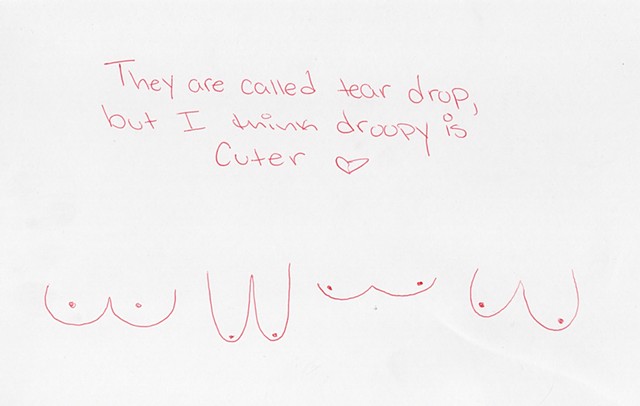 They are called tear drop,
but I think droopy is
Cuter ♡